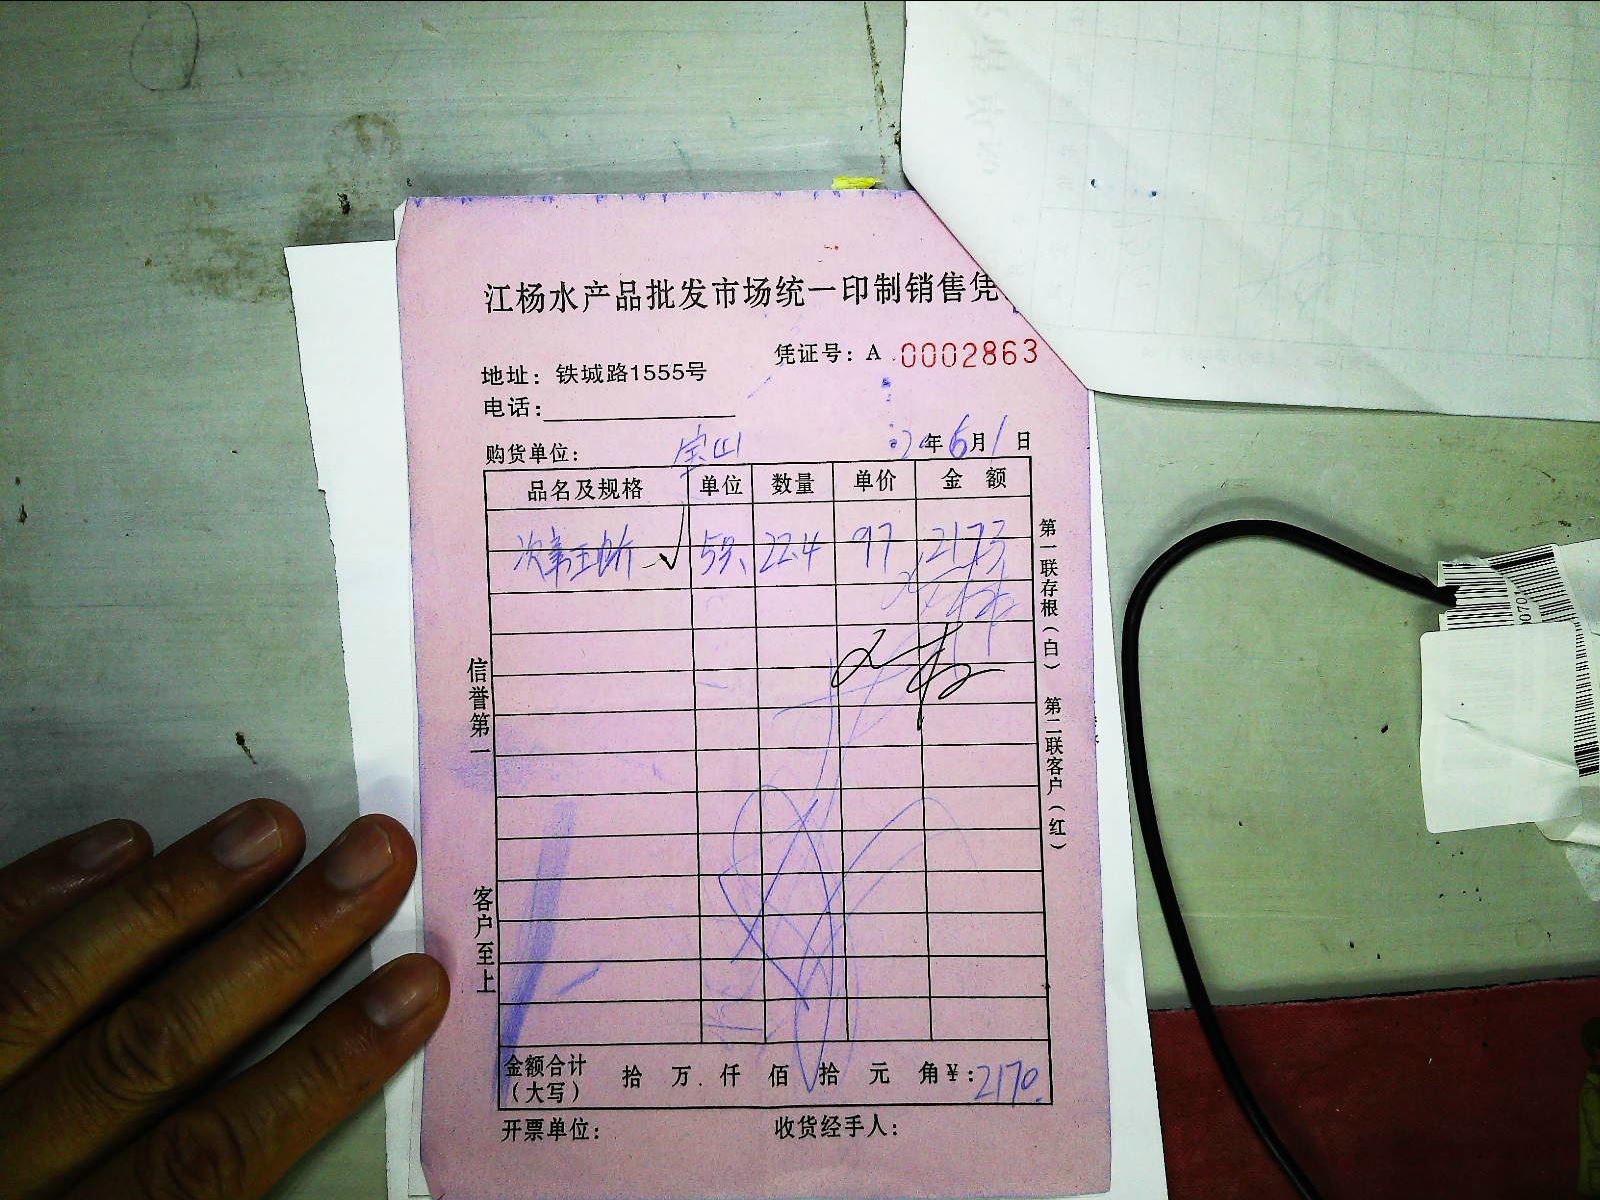 江杨水产品批发市场统一印制销售凭
凭证号：A 0002863
地址：铁城路1555号
电话：
购货单位： 宝山 年 6月 1日
品名及规格 单位 数量 单价 金 额
22.4 97 2173
信誉第一
客户至上
第一联存根（白） 第二联客户（红）
金额合计（大写） 拾 万 仟 佰 拾 元 角 ¥：2170.
开票单位： 收货经手人：